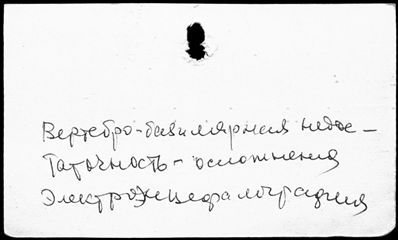 Вертебро-базилярная недос-
таточность - осложнения
Электроэнцефалография